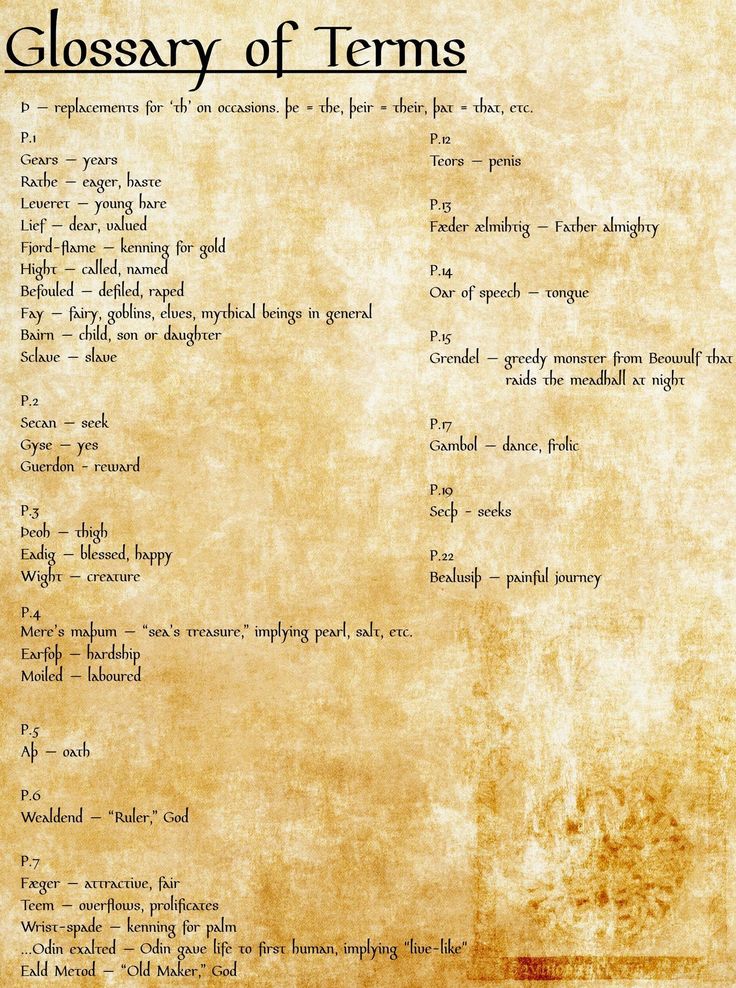 Glossary of Terms
Þ – replacements for ‘th’ on occasions. þe = the, þeir = their, þat = that, etc.
P.1
Gears – years
Rathe – eager, haste
Leveret – young hare
Lief – dear, valued
Fjord-flame – kenning for gold
Hight – called, named
Befouled – defiled, raped
Fay – fairy, goblins, elves, mythical beings in general
Bairn – child, son or daughter
Sclave – slave
P.2
Secan – seek
Gyse – yes
Guerdon - reward
P.3
Þeoh – thigh
Eadig – blessed, happy
Wight – creature
P.4
Mere's maþum – “sea's treasure,” implying pearl, salt, etc.
Earfoþ – hardship
Moiled – laboured
P.5
Aþ – oath
P.6
Wealdend – “Ruler,” God
P.7
Fæger – attractive, fair
Teem – overflows, prolificates
Wrist-spade – kenning for palm
...Odin exalted – Odin gave life to first human, implying "live-like"
Eald Metod – “Old Maker,” God
P.12
Teors – penis
P.13
Fæder ælmihtig – Father almighty
P.14
Oar of speech – tongue
P.15
Grendel – greedy monster from Beowulf that
raids the meadhall at night
P.17
Gambol – dance, frolic
P.19
Secþ - seeks
P.22
Bealusiþ – painful journey